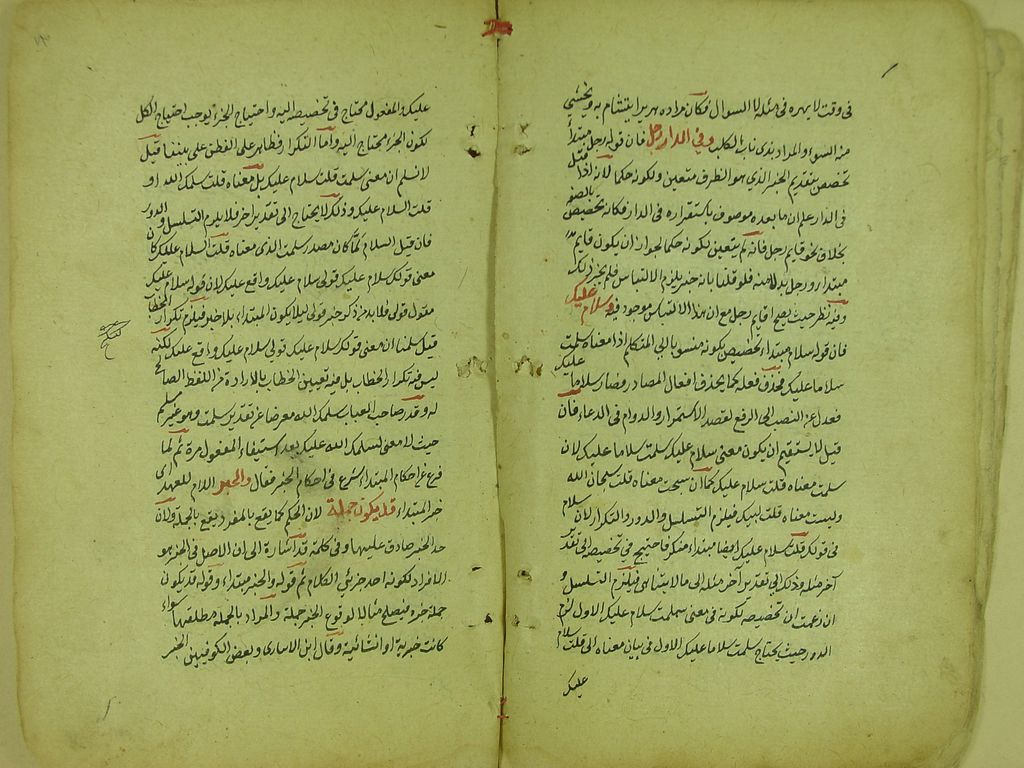 فى وقت لا يهره فى مثله السوال فكان مراده هرير ايتشام به ويخشى
من السوء والمراد بذى ناب الكلب وفي الدار رجل فان قوله رجل مبتدأ
تخصص بتقديم الخبر الذي هو الظرف متعين ولكونه حكما لانه اذا قيل
فى الدار علم ان ما بعده موصوف باستقراره فى الدار فكانه تخصيص بالصفة
بخلاف نحو قايم رجل فانه لم يتعين بكونه حكما لجواز ان يكون قايم
مبتدا ورجل بدلا منه فلو قلنا بانه خبر يلزم الالتباس فلم يجز ذلك
وفيه نظر حيث يصح اقايم رجل مع ان هذا الالتباس موجود فيه وسلام عليك
فان قوله سلام مبتداء تخصيص بكونه منسوبا الى المتكلم اذا معناه سلمت
سلاما عليك فحذف فعله كما يحذف افعال المصادر فصار سلاما عليك
فعدل عن النصب الى الرفع لقصد الاستمرار والدوام فى الدعاء فان
قيل لا يستقيم ان يكون معنى سلام عليك سلمت سلاما عليك لان
سلمت معناه قلت سلام عليك كما ان سبحت معناه قلت سبحان الله
ولبيت معناه قلت لبيك فيلزم التسلسل والدور والتكرار لان سلام
فى قولك قلت سلام عليك ايضا مبتداء منكر فاحتيج فى تخصيصه الى تقدير
آخر مثله وذلك الى تقدير آخر مثله الى ما لا يتناهى فيلزم التسلسل و
ان زعمت ان تخصيصه لكونه فى معنى سلمت سلام عليك الاول لزم
الدور حيث يحتاج سلمت سلاما عليك الاول فى بيان معناه الى قلت سلام
عليك
عليك والمفعول محتاج فى تخصيصه اليه واحتياج الجزء يوجب احتياج الكل
لكون الجزء محتاج اليه واما التكرار فظاهر على الفطن على بيننا قيل
لا نسلم ان معنى سلمت قلت سلام عليك بل معناه قلت سلمك الله او
قلت السلام عليك وذلك لا يحتاج الى تقدير آخر فلا يلزم التسلسل والدور
فان قيل السلام لما كان مصدر سلمت الذى معناه قلت السلام عليك كان
معنى قولك سلام عليك قولى سلام عليك واقع عليك لان قوله سلام عليك
مقول قولى فلا بد من ذكر خبر قولى ليلا يكون المبتداء بلا خبر فيلزم تكرار الخطاب
قيل سلمنا ان معنى قولك سلام عليك قولى سلام عليك واقع عليك لكنه
ليس فيه تكرار الخطاب بل فيه تعيين الخطاب بالارادة من اللفظ الصالح
له وقدر صاحب العباب سلمك الله معرضا عن تقدير سلمت وهو غير سليم
حيث لا معنى لسلمك الله عليك بعد استيفاء المفعول مرة ثم لما
فرغ عن احكام المبتداء شرع فى احكام الخبر فقال والخبر اللام للعهد اى
خبر المبتداء قد يكون جملة لان الحكم كما يقع بالمفرد يقع بالجملة ولان
حد الخبر صادق عليها وفى كلمة قد اشارة الى ان الاصل فى الخبر هو
الافراد لكونه احد جزئي الكلام ثم قوله والخبر مبتداء وقوله قد يكون
جملة خبره فيصلح مثالا لوقوع الخبر جملة والمراد بالجملة مطلقها سواء
كانت خبرية او انشائية وقال ابن الانبارى وبعض الكوفيين الخبر